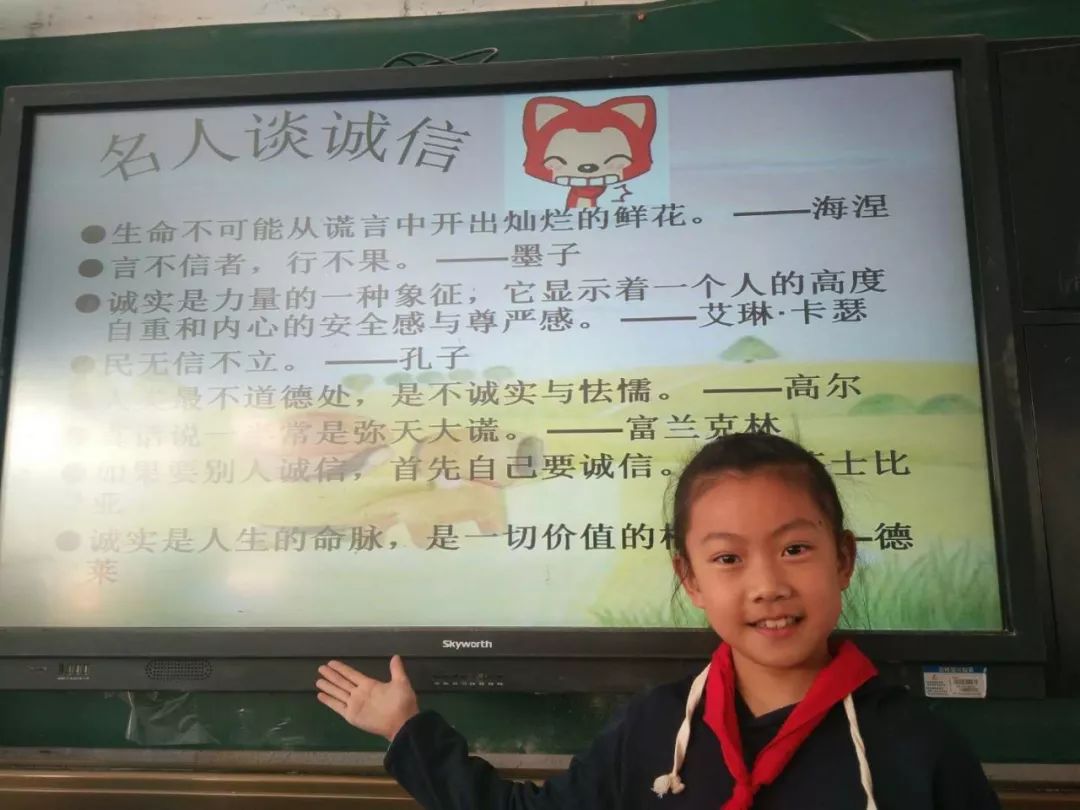 名人谈诚信
●生命不可能从谎言中开出灿烂的鲜花。 ——海涅
●言不信者，行不果。 ——墨子
●诚实是力量的一种象征，它显示着一个人的高度
自重和内心的安全感与尊严感。 ——艾琳·卡瑟
●民无信不立。 ——孔子
最不道德处，是不诚实与怯懦。 ——高尔
说一 常是弥天大谎。 ——富兰克林
●如果要别人诚信，首先自己要诚信。 士比
亚
●诚实是人生的命脉，是一切价值的 —德
莱
Skyworth